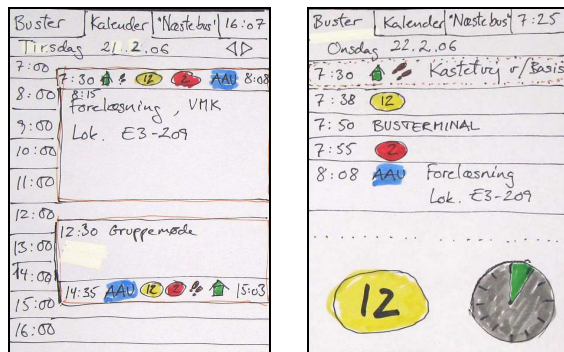 Buster Kalender "Næstebus" 16:07
Tirsdag 21.2.06
7:00
7:30 12 2 AAU 8:08
8:00 8:15
Forelæsning, VMK
9:00 Lok. E3-209
10:00
11:00
12:00
12:30 Gruppemøde
13:00
14:00
14:35 AAU 12 2 15:03
15:00
16:00
Buster Kalender "Næstebus" 7:25
Onsdag 22.2.06
7:30 Kastetvej v/Basis
7:38 12
7:50 BUSTERMINAL
7:55 2
8:08 AAU Forelæsning
Lok. E3-209
12